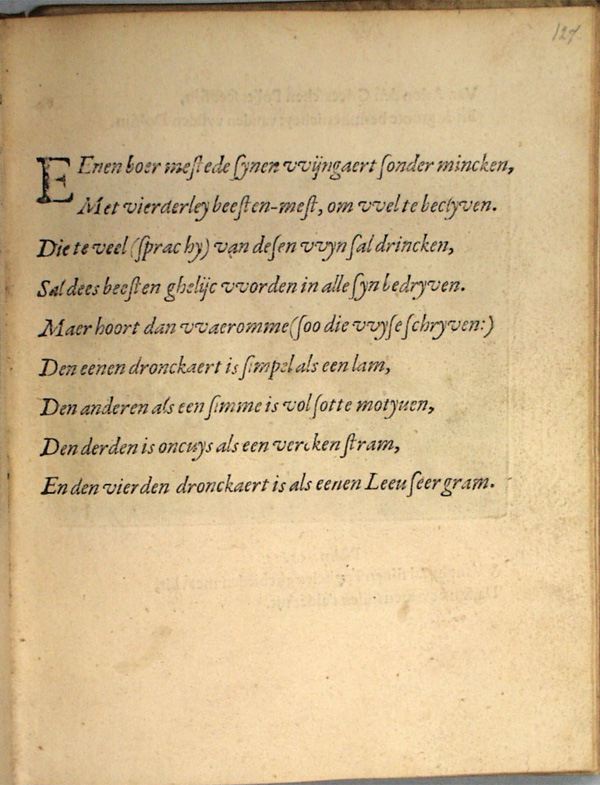 127.
EEnen boer mestede synen vvijngaert sonder mincken,
Met vierderley beesten-mest, om vvel te beclyven.
Die te veel (sprac hy) van desen vvyn sal drincken,
Sal dees beesten ghelijc vvorden in alle syn bedryven.
Maer hoort dan vvaeromme (soo die vvyse schryven:)
Den eenen dronckaert is simpel als een lam,
Den anderen als een simme is vol sotte motyuen,
Den derden is oncuys als een vercken stram,
En den vierden dronckaert is als eenen Leeu seer gram.